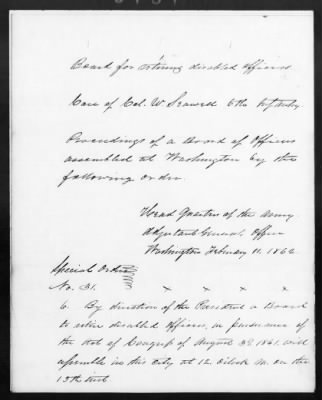 Board for retiring disabled officers
Case of Col. W Seawell 6th Infantry
Proceedings of a Board of Officers
assembled at Washington by the
following order.
Head Quarters of the Army.
Adjutant General's Office
Washington February 11. 1862
Special Orders
No. 31. x x x x
6. By direction of the President a Board
to retire disabled officers, in pursuance of
the act of Congress of August 3d 1861. will
assemble in this city at 12 o'clock M. on the
13th inst